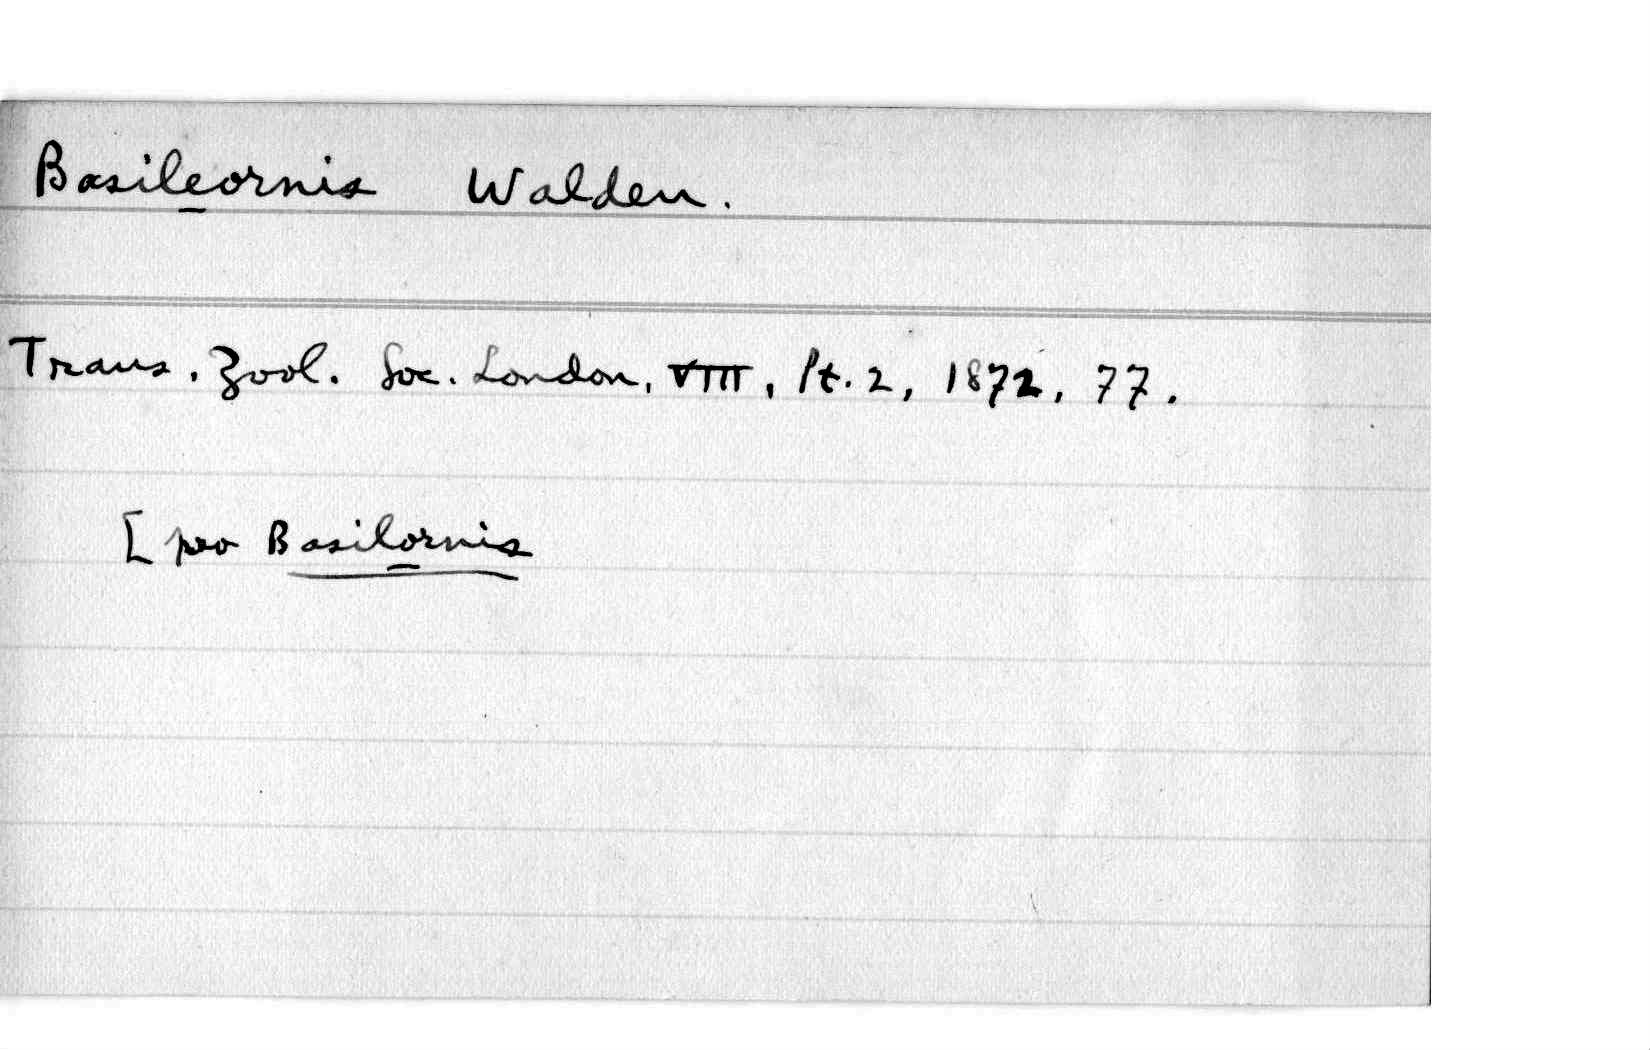 Basileornis Walden.
Trans. Zool. Soc. London, VIII, Pt. 2, 1872, 77.
[ pro Basilornis